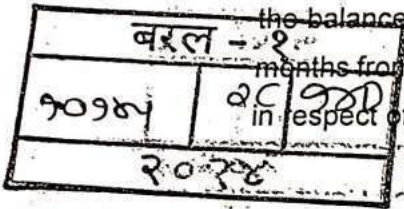 the balance
बरल - १
months from
२८
in respect of
२०२४